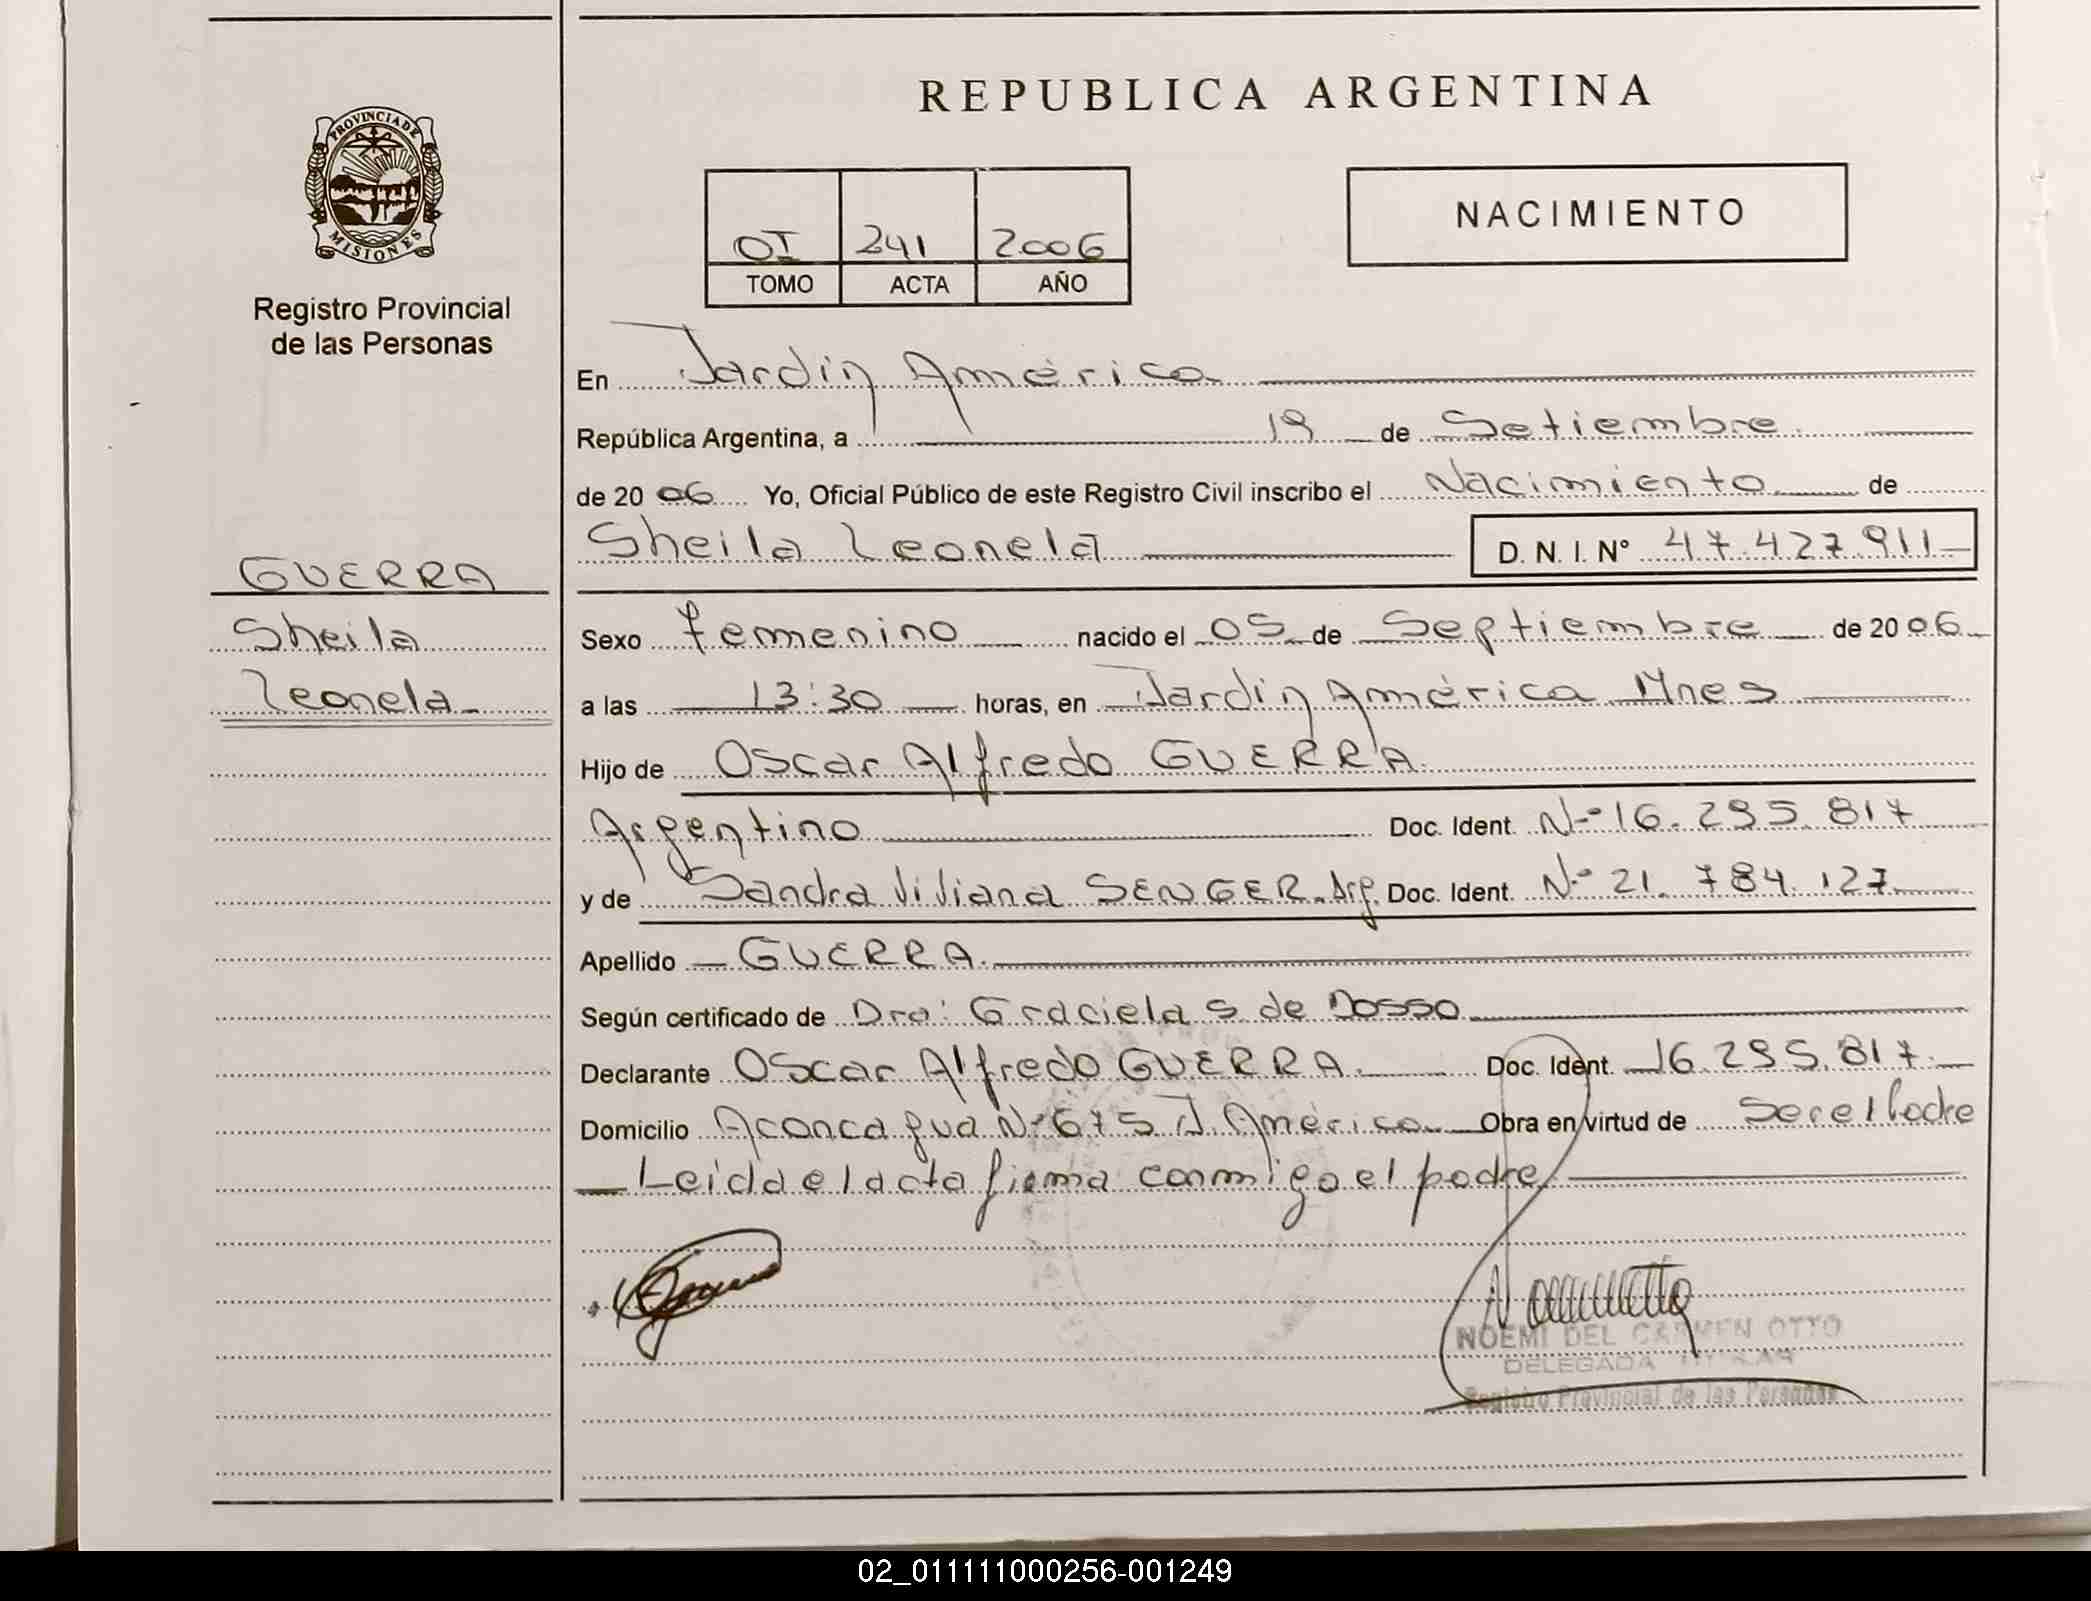 REPUBLICA ARGENTINA
PROVINCIA DE
MISIONES
Registro Provincial
de las Personas
NACIMIENTO
OI 241 2006
TOMO ACTA AÑO
En Jardín América
República Argentina, a 19 de Setiembre
de 2006 Yo, Oficial Público de este Registro Civil inscribo el Nacimiento de
Sheila Leonela D. N. I. N° 47.427.911
GUERRA
Sheila
Leonela
Sexo femenino nacido el 05 de Septiembre de 2006
a las 13:30 horas, en Jardín América Mnes
Hijo de Oscar Alfredo GUERRA
Argentino Doc. Ident. Nº 16.295.817
y de Sandra Viviana SENGER. Arg. Doc. Ident. Nº 21.784.127
Apellido GUERRA.
Según certificado de Dra: Graciela S de Dosso
Declarante Oscar Alfredo GUERRA. Doc. Ident. 16.295.817.
Domicilio Aconcagua Nº 675 J. América Obra en virtud de Ser el Padre
Leida el acta firma conmigo el padre
NOEMI DEL CARMEN OTTO
DELEGADA TITULAR
Registro Provincial de las Personas
02_011111000256-001249